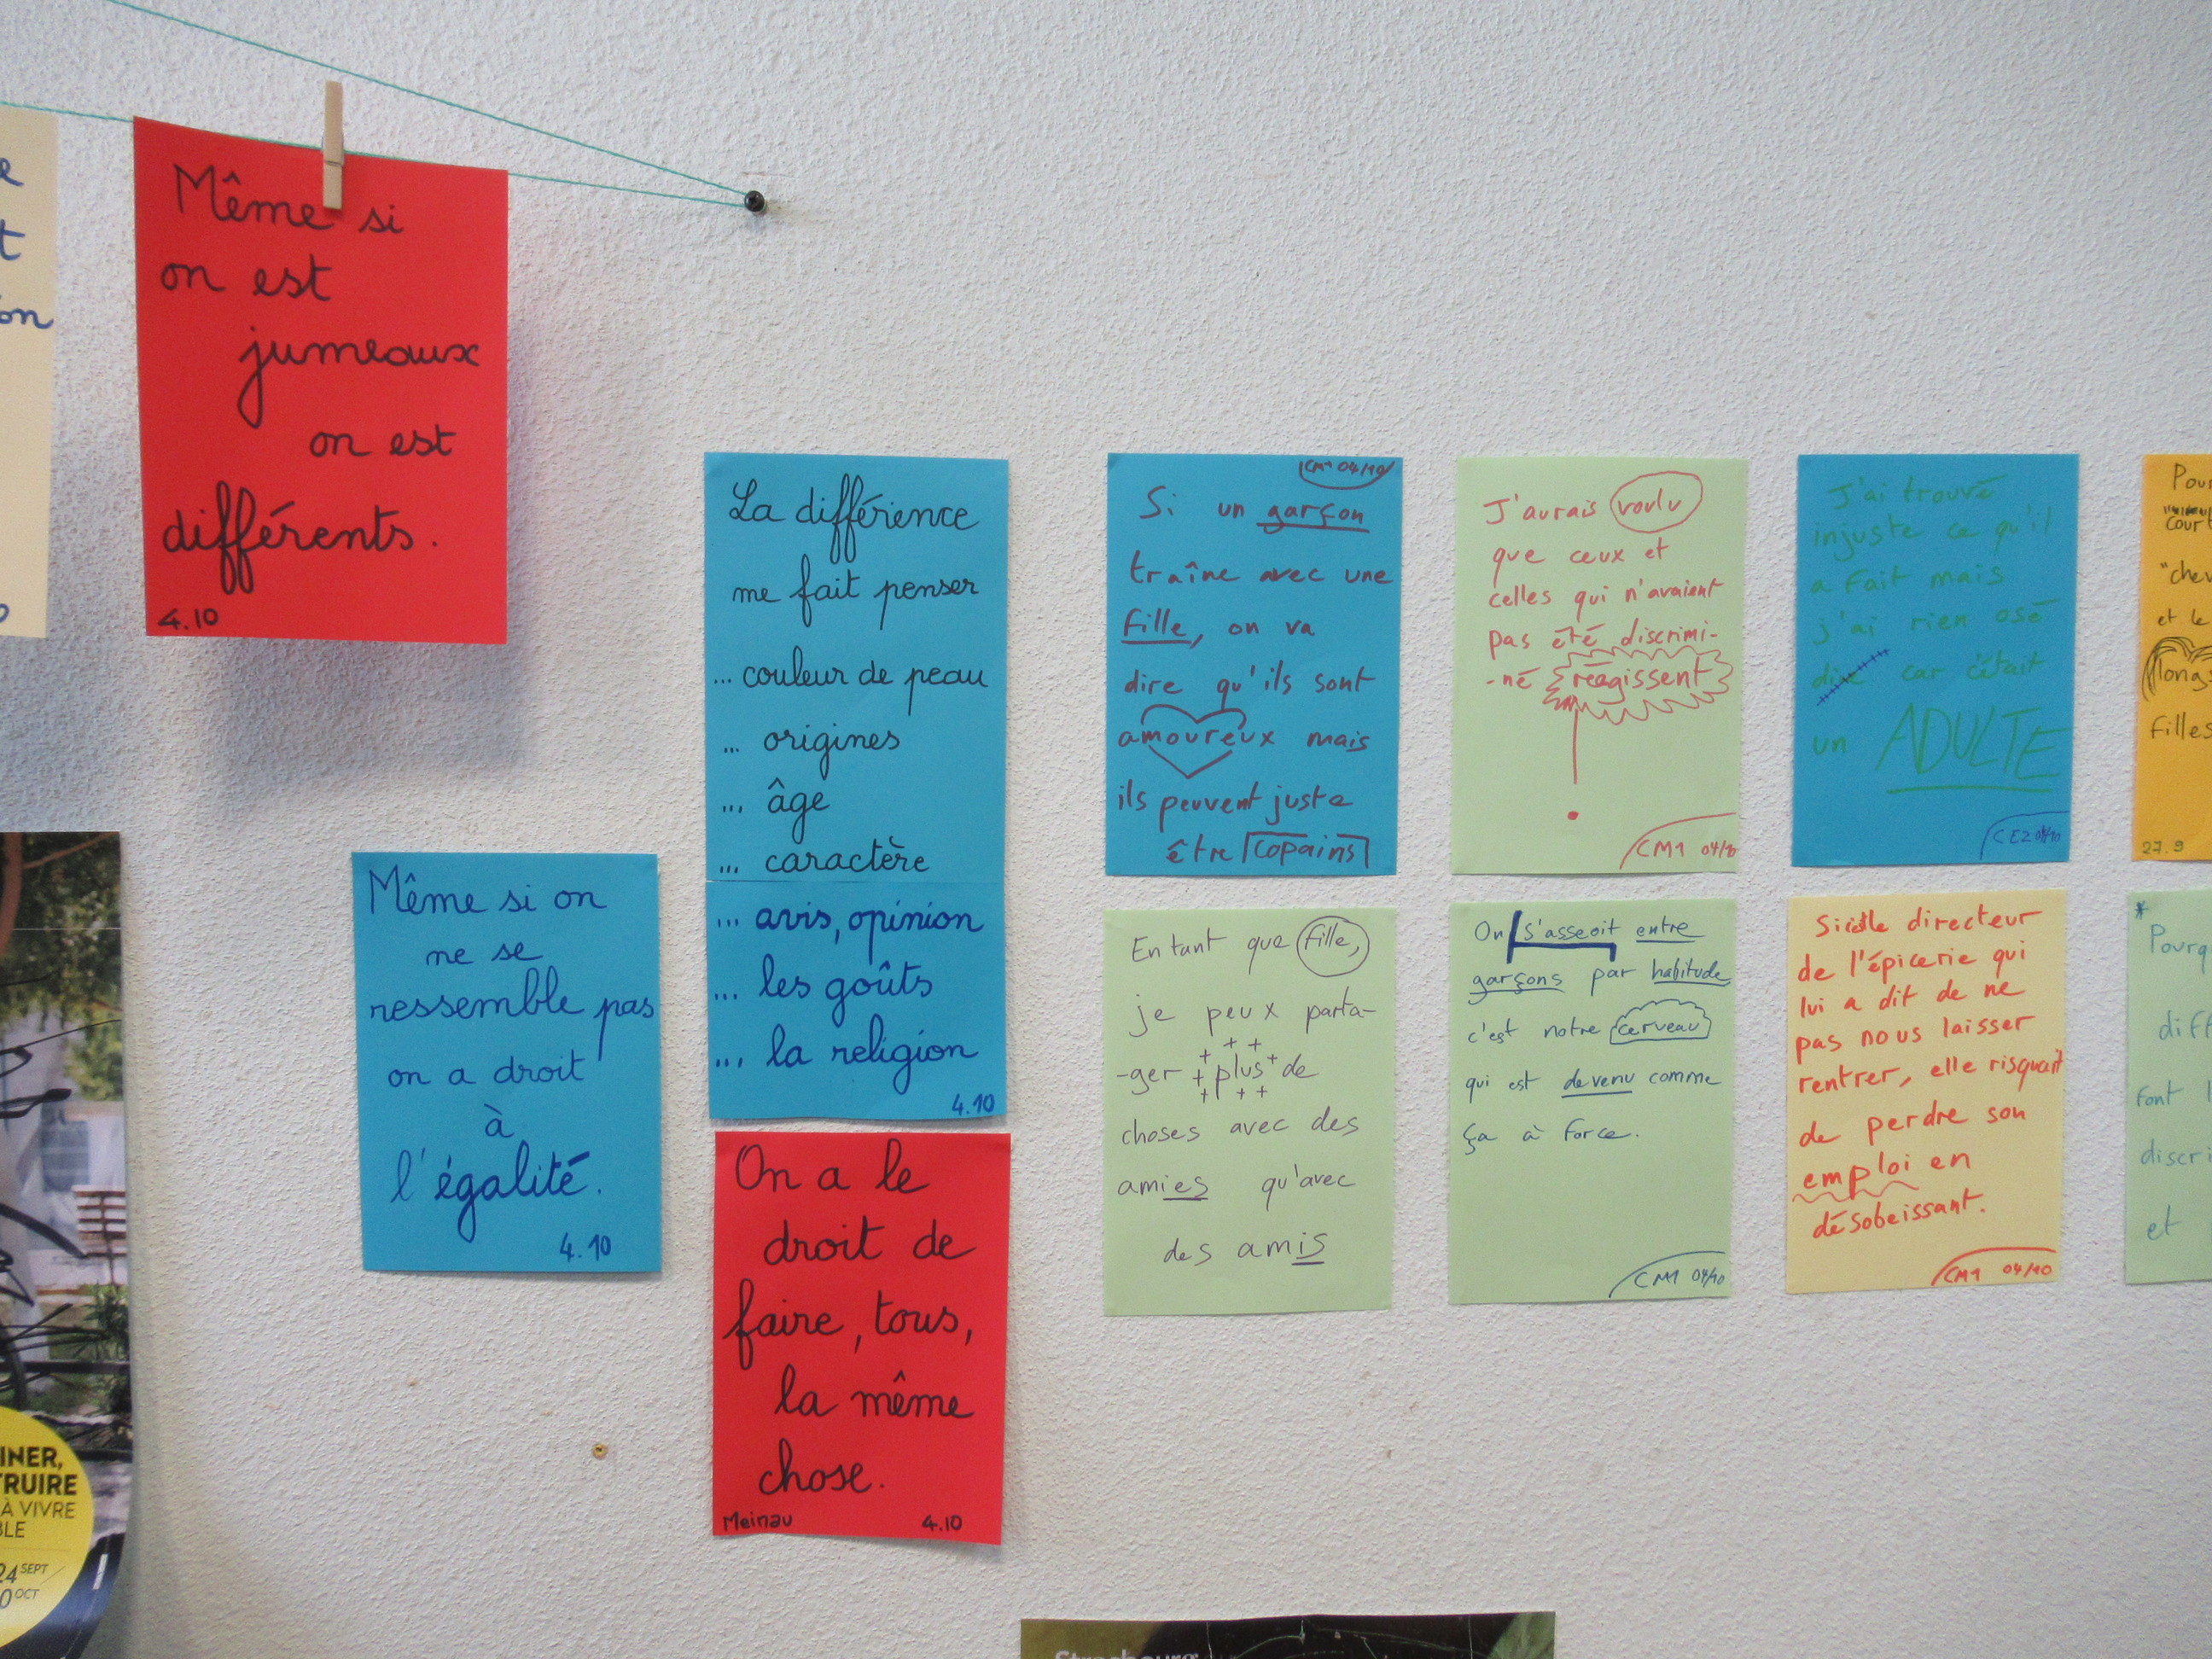 e
t
on
Même si
on est
jumeaux
on est
différents.
4.10
Même si on
ne se
ressemble pas
on a droit
à
l'égalité.
4.10
La différence
me fait penser
... couleur de peau
... origines
... âge
... caractère
... avis, opinion
... les goûts
... la religion
4.10
On a le
droit de
faire, tous,
la même
chose.
Meinau 4.10
CM1 04/10
Si un garçon
traîne avec une
fille, on va
dire qu'ils sont
amoureux mais
ils peuvent juste
être copains
J'aurais voulu
que ceux et
celles qui n'avaient
pas été discrimi-
-né réagissent
!
CM1 04/10
J'ai trouvé
injuste ce qu'il
a fait mais
j'ai rien osé
dire car c'était
un ADULTE
CE2 04/10
Pour
court
"chev
et le
long
filles
27.9
En tant que fille,
je peux parta-
-ger + plus + de
choses avec des
amies qu'avec
des amis
On s'asseoit entre
garçons par habitude
c'est notre cerveau
qui est devenu comme
ça à force.
CM1 04/10
directeur
de l'épicerie qui
lui a dit de ne
pas nous laisser
rentrer, elle risquait
de perdre son
emploi en
désobeissant.
CM1 04/10
*
Pourq
diff
font l
discri
et
INER,
TRUIRE
À VIVRE
BLE
24 SEPT
0 OCT
Strasbourg